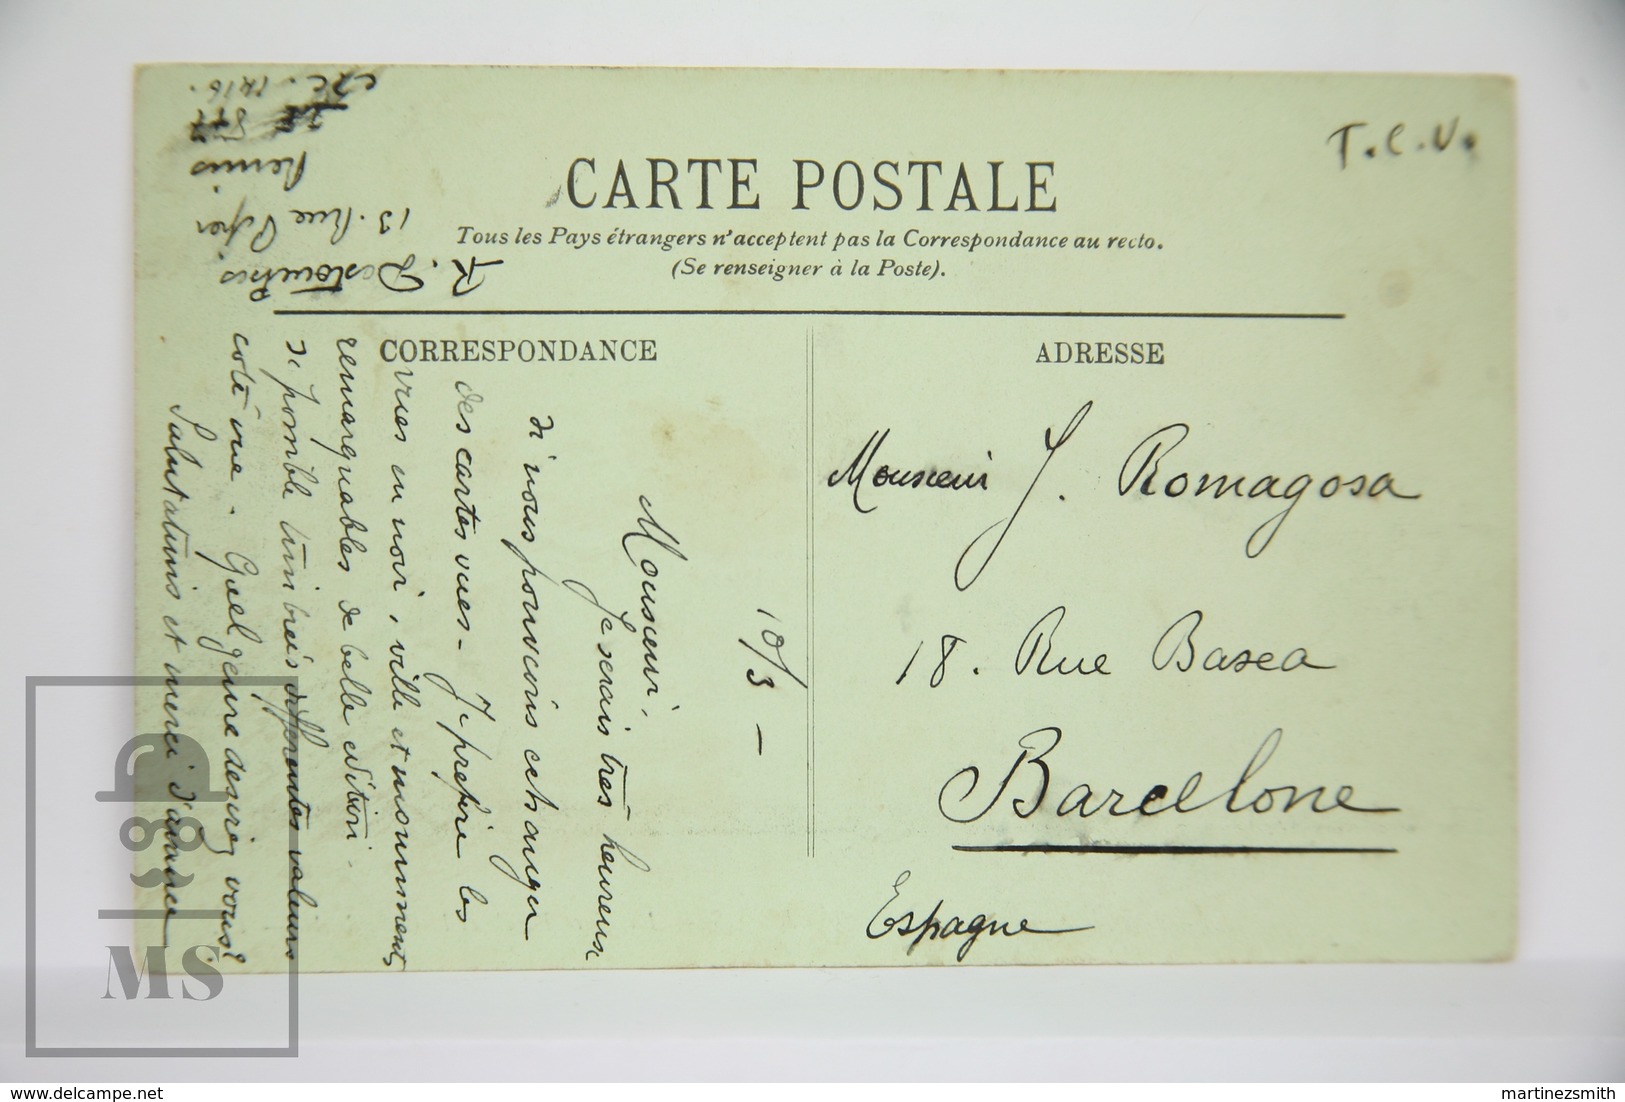 T.C.V.
CARTE POSTALE
Tous les Pays étrangers n'acceptent pas la Correspondance au recto.
(Se renseigner à la Poste).
CORRESPONDANCE
ADRESSE
10/3 –
Monsieur,
Je serais très heureux
si nous pouvions échanger
des cartes vues – Je préfère les
vues en noir, ville et monuments
remarquables de belle édition.
si possible timbrées différentes valeurs
coté vue. Quel genre desirez vous?
Salutations et merci d'avance
R. Destouches
13. Rue
Reims
Monsieur J. Romagosa
18. Rue Basea
Barcelone
Espagne
MS
martinezsmith
www.delcampe.net